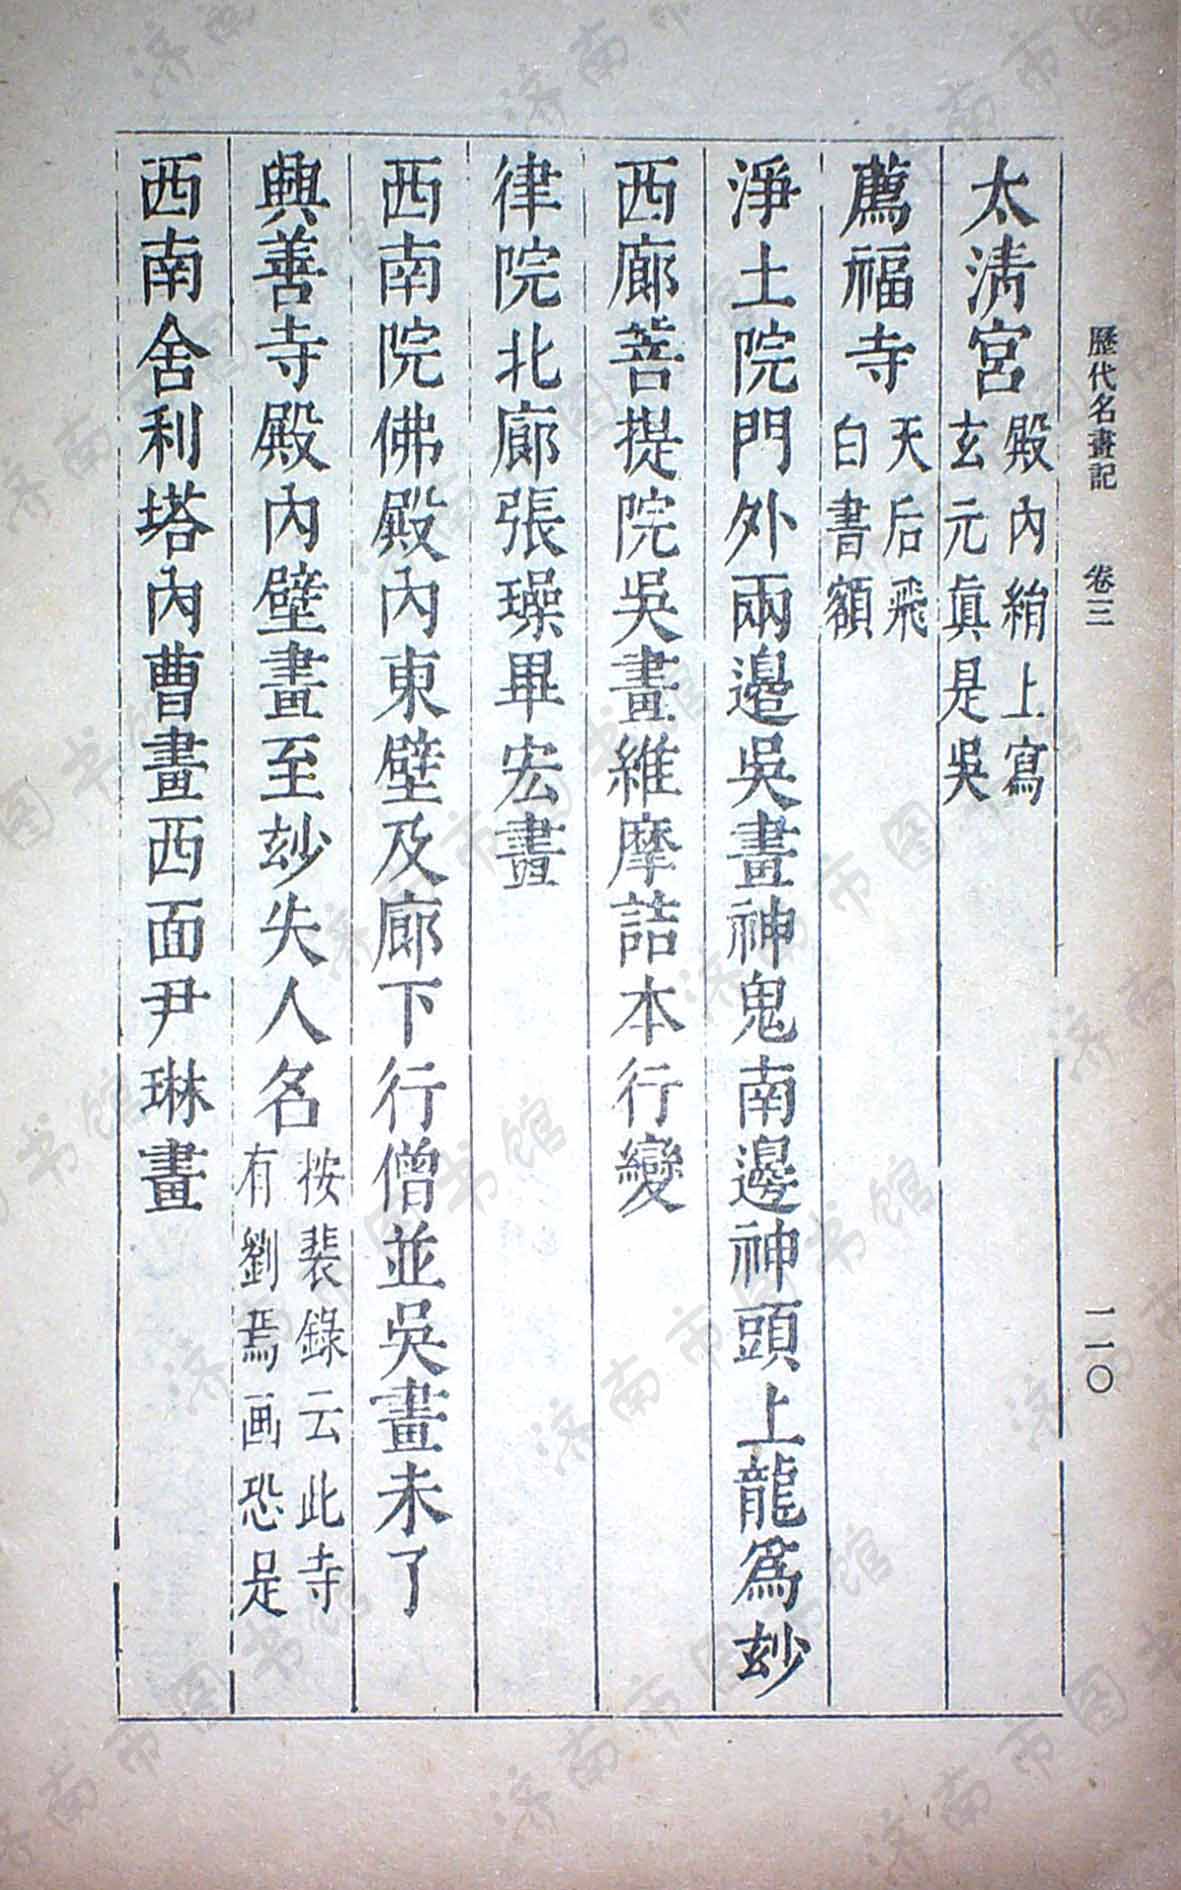 歷代名畫記　卷三　一一〇
太清宮殿內絹上寫
玄元眞是吳
薦福寺天后飛
白書額
淨土院門外兩邊吳畫神鬼南邊神頭上龍爲玅
西廊菩提院吳畫維摩詰本行變
律院北廊張璪畢宏畫
西南院佛殿內東壁及廊下行僧並吳畫未了
興善寺殿內壁畫至玅失人名按裴錄云此寺
有劉焉画恐是
西南舍利塔內曹畫西面尹琳畫
济南市图书馆